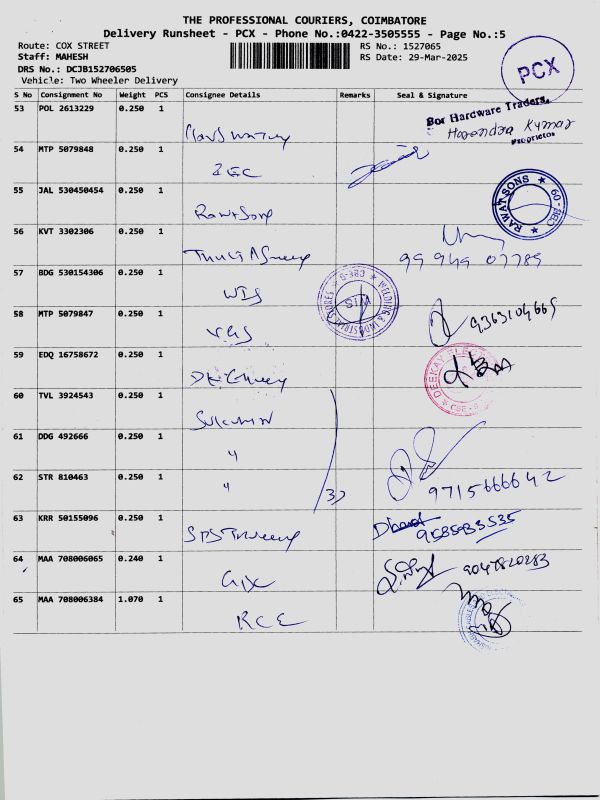 THE PROFESSIONAL COURIERS, COIMBATORE
Delivery Runsheet - PCX - Phone No.:0422-3505555 - Page No.:5
Route: COX STREET
RS No.: 1527065
Staff: MAHESH
RS Date: 29-Mar-2025
DRS No.: DCJB152706505
Vehicle: Two Wheeler Delivery
PCX
S No Consignment No Weight PCS Consignee Details Remarks Seal & Signature
53 POL 2613229 0.250 1
For Hardware Traders,
Harendra Kumar
Proprietor
54 MTP 5079848 0.250 1
55 JAL 530450454 0.250 1
RAWAT SONS
56 KVT 3302306 0.250 1
99949 07789
57 BDG 530154306 0.250 1 WIS
WELDING & INDUSTRIAL STORES
SIM
58 MTP 5079847 0.250 1 VGS
9363104665
59 EDQ 16758672 0.250 1
60 TVL 3924543 0.250 1
61 DDG 492666 0.250 1 "
62 STR 810463 0.250 1 "
9715666642
63 KRR 50155096 0.250 1
9585933535
64 MAA 708006065 0.240 1
9047820283
65 MAA 708006384 1.070 1 RCE